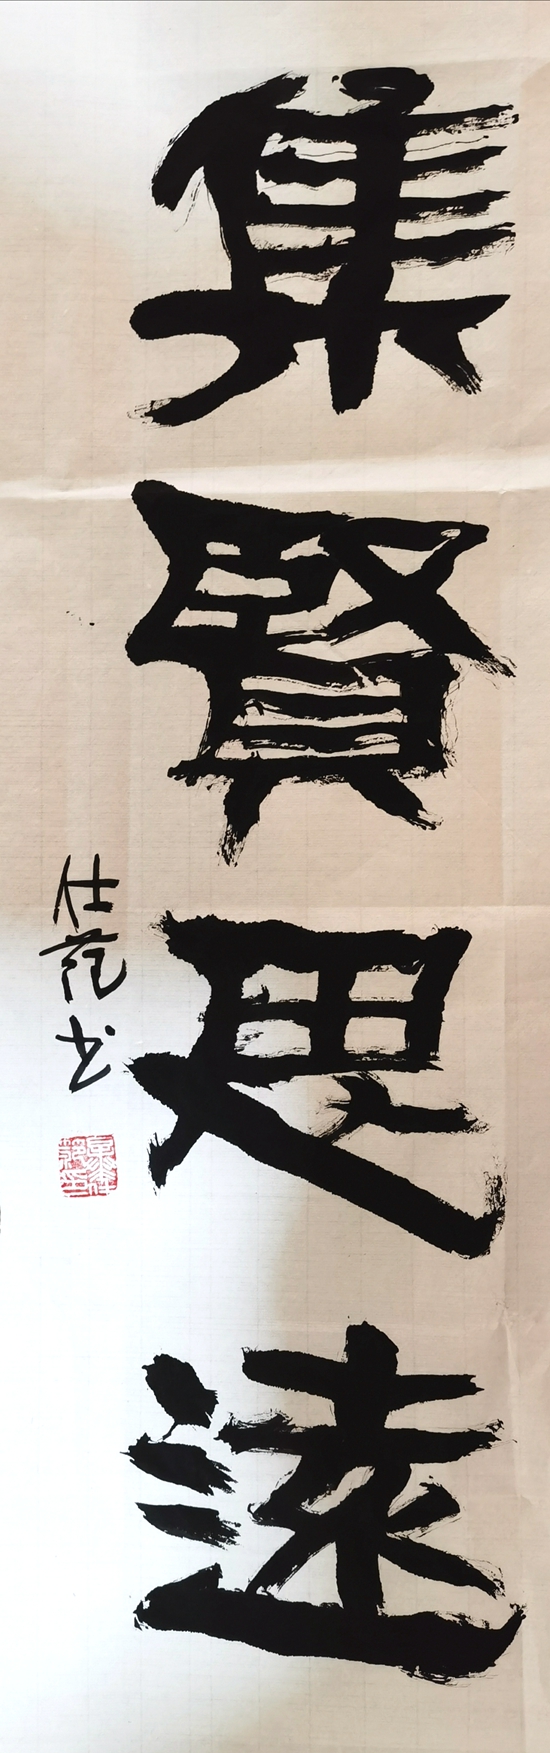 集賢思遠
仕范书